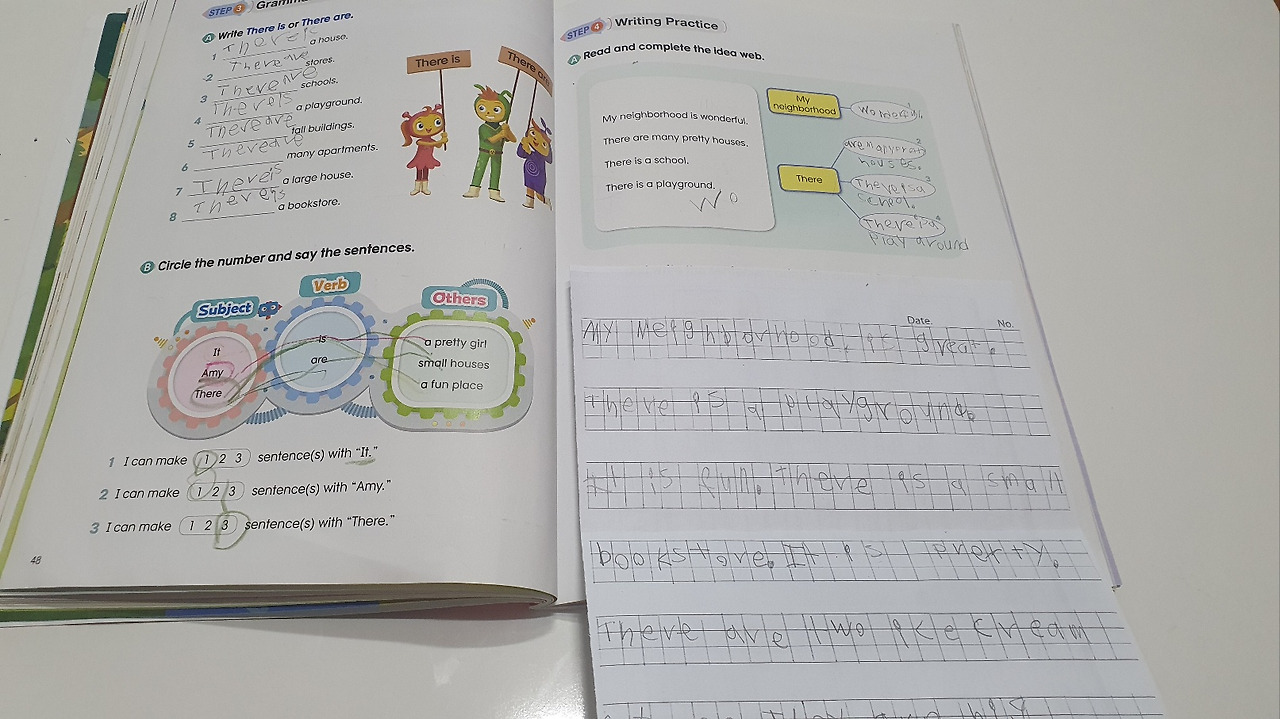 STEP 3 Gramma
A Write There is or There are.
1 There is a house.
2 There are stores.
3 There are schools.
4 There is a playground.
5 There are tall buildings.
6 There are many apartments.
7 There is a large house.
8 There is a bookstore.
There is
There are
B Circle the number and say the sentences.
Subject Verb Others
It is a pretty girl
Amy are small houses
There a fun place
1 I can make 1 2 3 sentence(s) with "It."
2 I can make 1 2 3 sentence(s) with "Amy."
3 I can make 1 2 3 sentence(s) with "There."
48
STEP 4 Writing Practice
A Read and complete the idea web.
My neighborhood is wonderful.
There are many pretty houses.
There is a school.
There is a playground.
Wo
My neighborhood
1
There
2
houses.
3
school.
4
There is a
play around
Date. No.
My neighborhood is great.
There is a playground.
It is fun. There is a small
bookstore. It is pretty.
There are two ice cream
They are